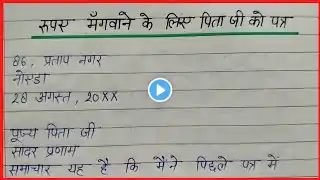 रुपए मँगवाने के लिए पिता जी को पत्र
86, प्रताप नगर
नोएडा
28 अगस्त, 20XX
पूज्य पिता जी
सादर प्रणाम
समाचार यह है कि मैंने पिछले पत्र में